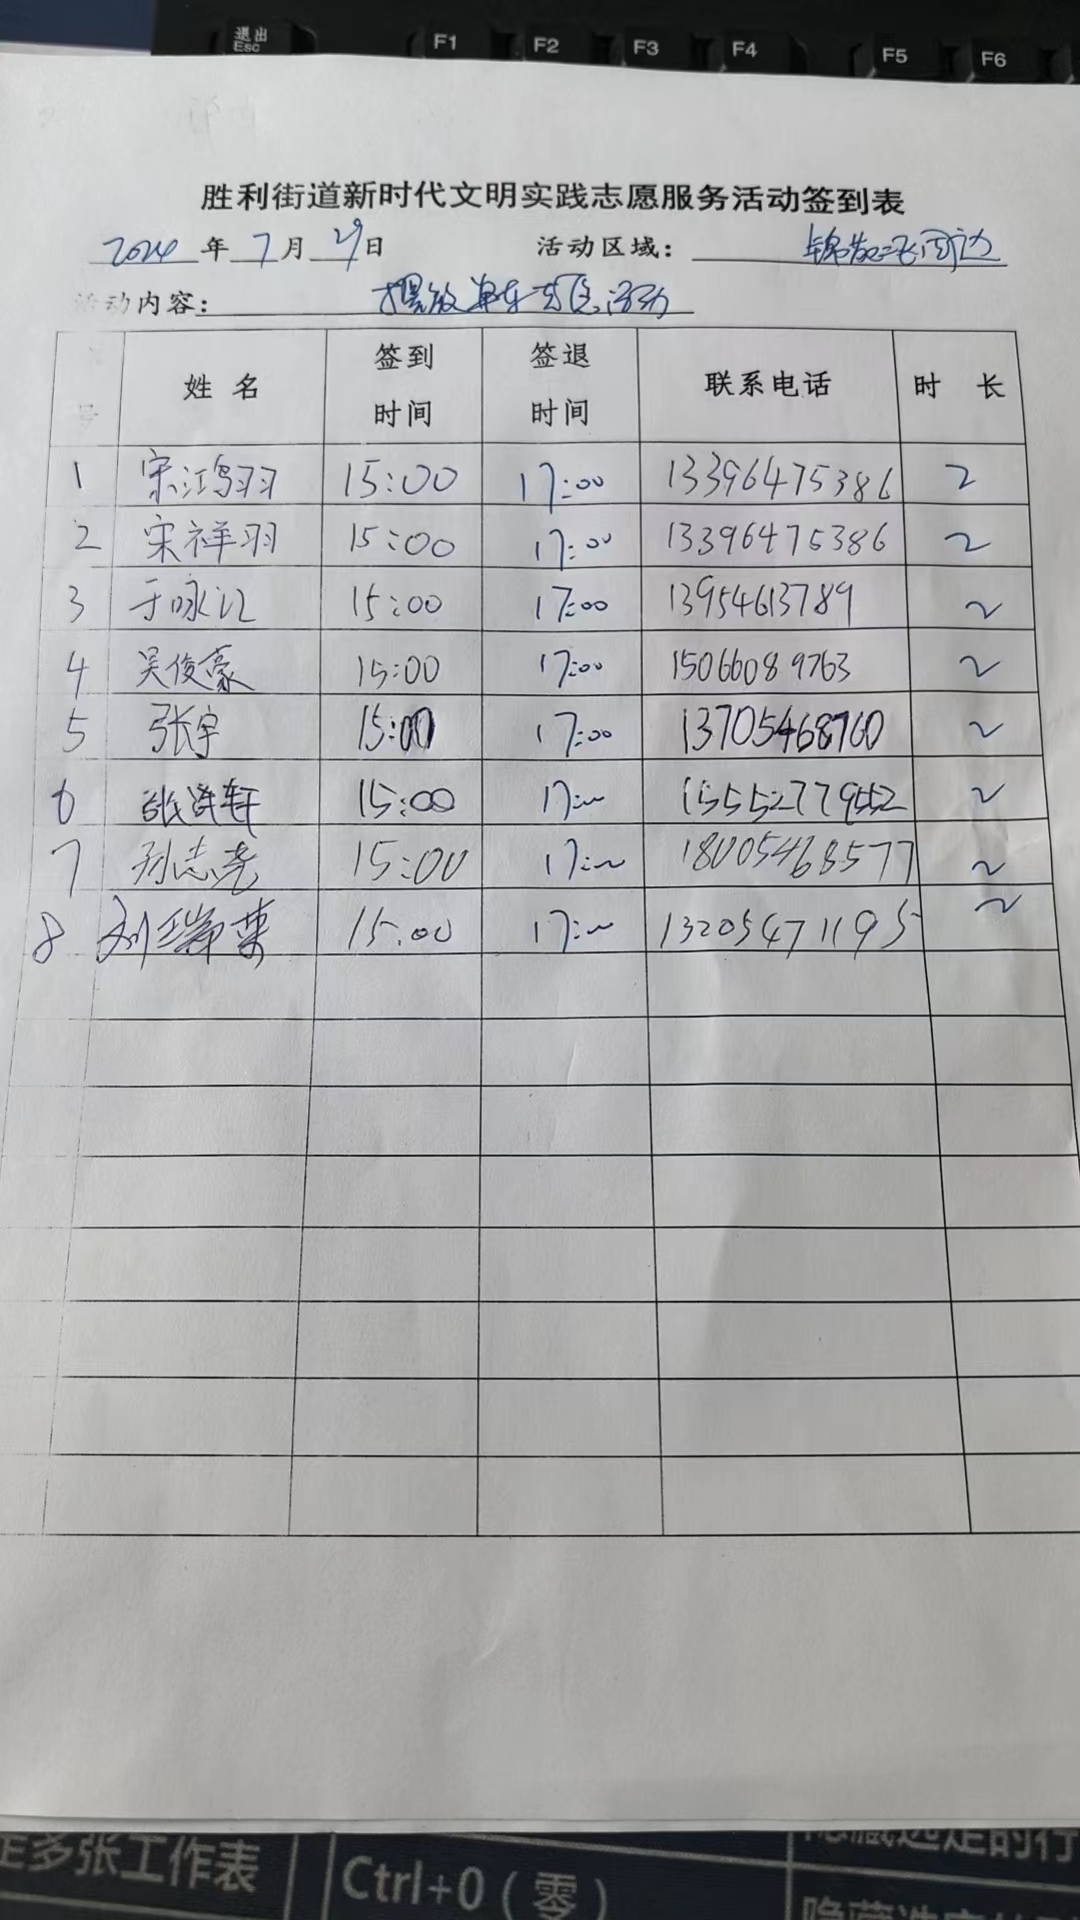 退出
Esc F1 F2 F3 F4 F5 F6
胜利街道新时代文明实践志愿服务活动签到表
2024年7月29日 活动区域：锦苑三区周边
活动内容：摆放单车志愿活动
号 姓名 签到时间 签退时间 联系电话 时长
1 宋江鸿羽 15:00 17:00 13396475386 2
2 宋祥羽 15:00 17:00 13396475386 2
3 于咏江 15:00 17:00 13954613789 2
4 吴俊豪 15:00 17:00 15066089763 2
5 张宇 15:00 17:00 13705468760 2
6 张 轩 15:00 17:00 15552779552 2
7 孙志尧 15:00 17:00 18005468577 2
8 刘瑞荣 15:00 17:00 13205471195 2
定多张工作表 Ctrl+0（零） 隐藏选定的行